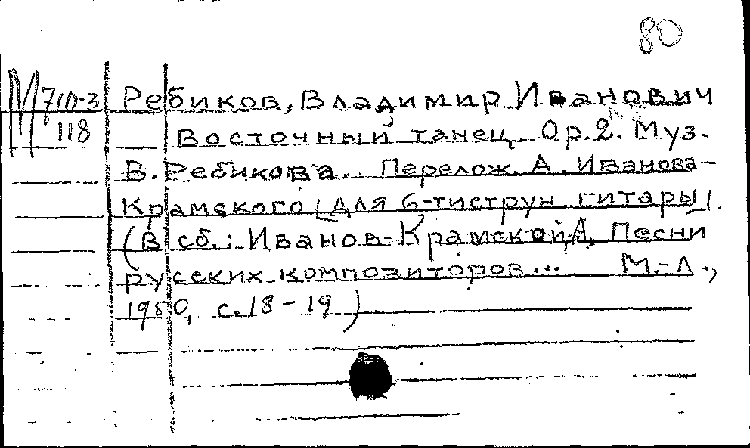 80
М 710-3 Ребиков, Владимир Иванович
118 Восточный танец. Ор.2. Муз.
В. Ребикова. Перелож. А. Иванова-
Крамского [для 6-тиструн. гитары].
(В сб.: Иванов-Крамской А. Песни
русских композиторов... М.-Л.,
1950, с. 18-19)